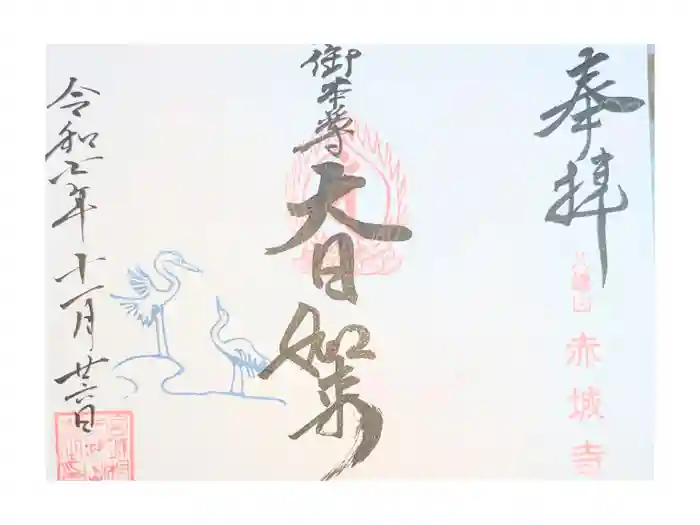 奉拝
八幡山
赤城寺
御本尊
大日如来
令和七年十一月廿六日